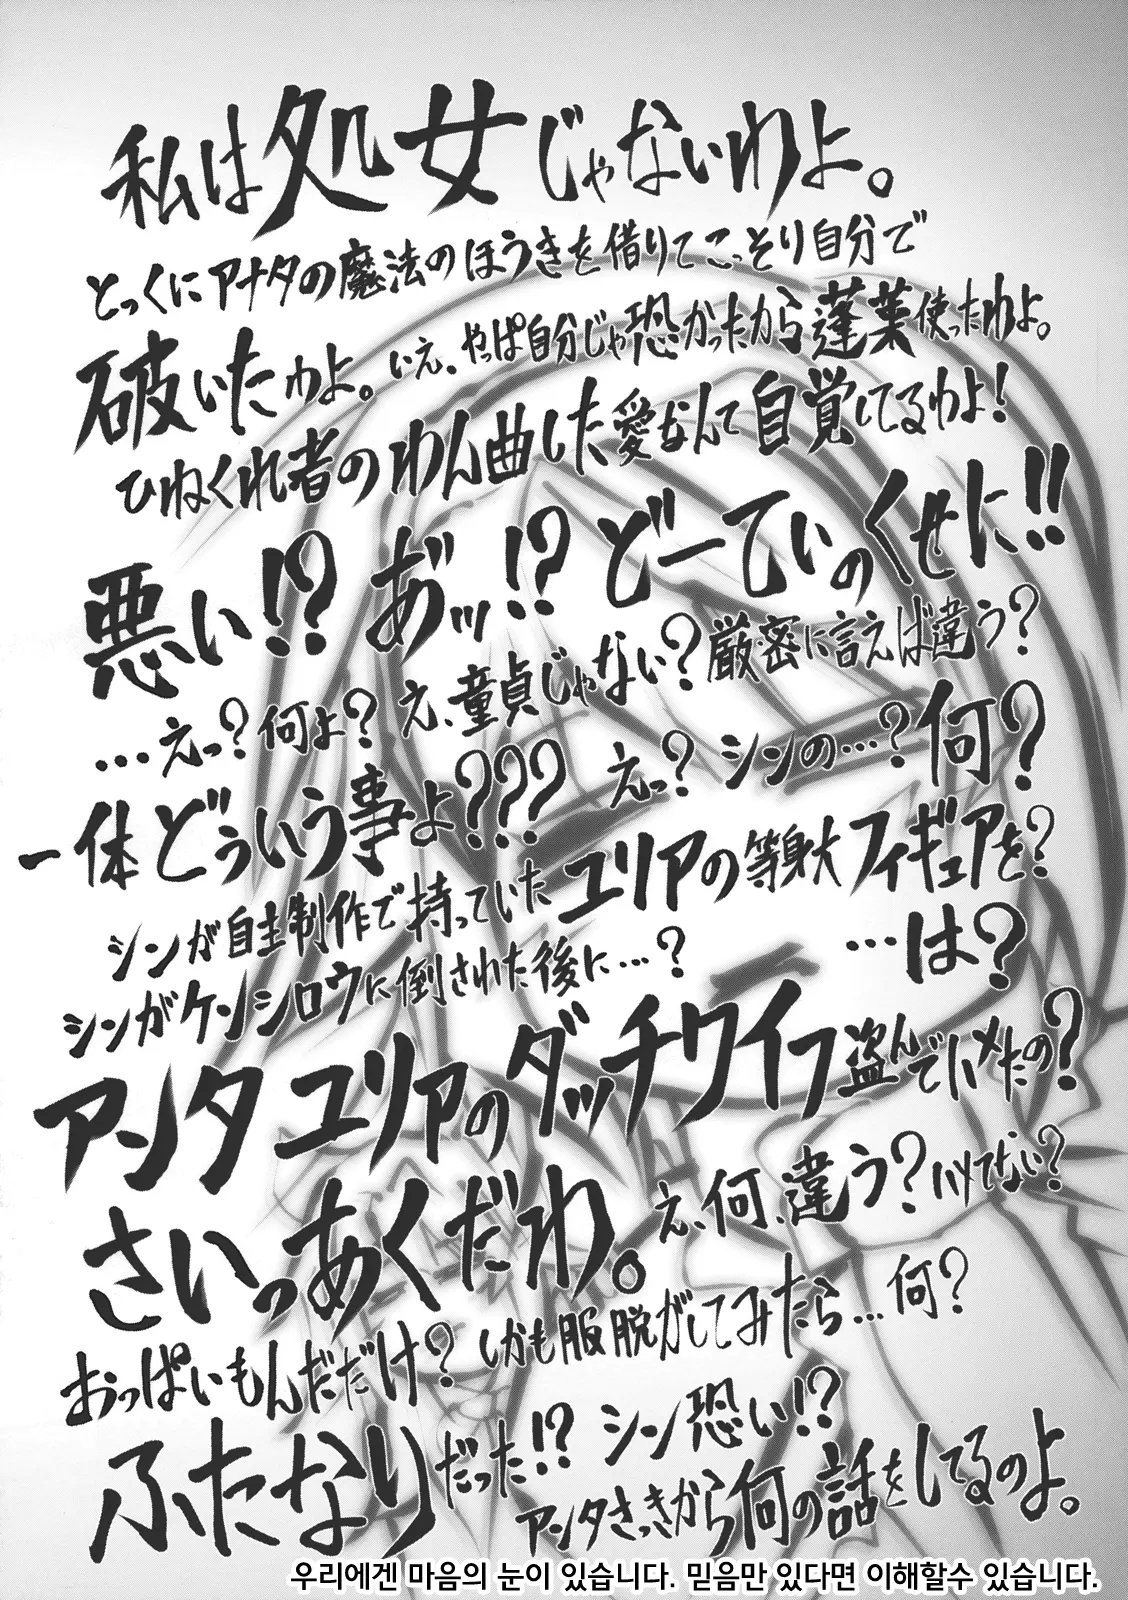 私は処女じゃないわよ。
とっくにアナタの魔法のほうきを借りてこっそり自分で
破いたわよ。いえ。やっぱ自分じゃ恐かったから蓬莱使ったわよ。
ひねくれ者のわん曲した愛なんて自覚してるわよ!
悪い!? あ゛ッ!? どーてぃのくせに!!
…えっ?何よ? え、童貞じゃない?厳密に言えば違う?
一体どういう事よ??? えっ? シンの…?何?
シンが自主制作で持っていたユリアの等身大フィギュアを?
シンがケンシロウに倒された後に…? …は?
アンタユリアのダッチワイフ盗んでハメたの?
さいっあくだわ。え、何、違う?ハメてない?
おっぱいもんだだけ?しかも服脱がしてみたら…何?
ふたなりだった!?シン恐い!?
アンタさっきから何の話をしてるのよ。
우리에겐 마음의 눈이 있습니다. 믿음만 있다면 이해할수 있습니다.